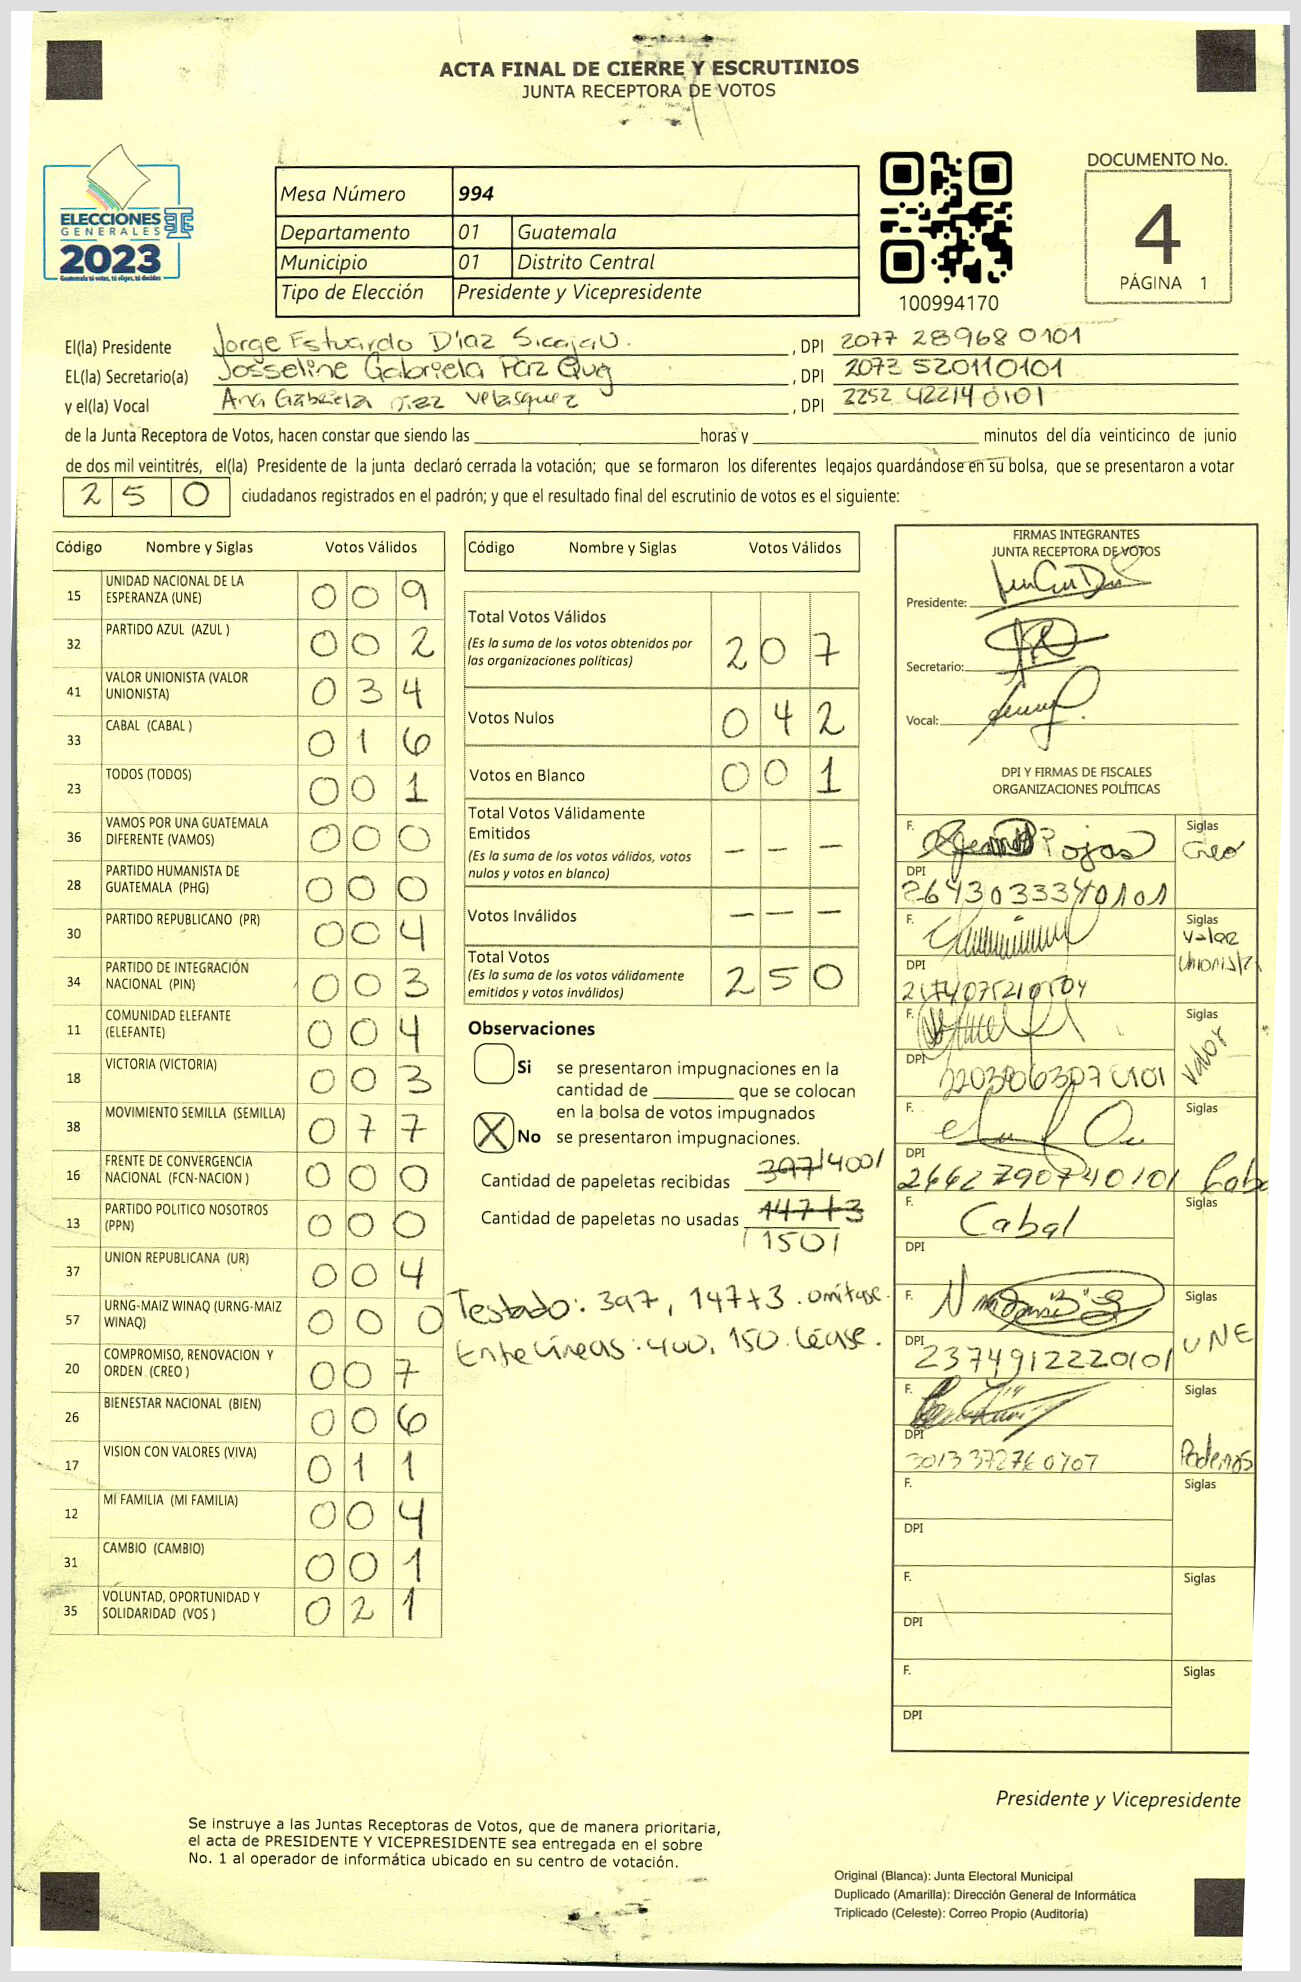 ACTA FINAL DE CIERRE Y ESCRUTINIOS
JUNTA RECEPTORA DE VOTOS
ELECCIONES
GENERALES
2023
Guatemala tú votas, tú eliges, tú decides
Mesa Número 994
Departamento 01 Guatemala
Municipio 01 Distrito Central
Tipo de Elección Presidente y Vicepresidente
100994170
DOCUMENTO No.
4
PÁGINA 1
El(la) Presidente Jorge Estuardo Díaz Sicajau. , DPI 2077 28968 0101
EL(la) Secretario(a) Josseline Gabriela Paz Qug , DPI 2073 52011 0101
y el(la) Vocal Ana Gabriela Diaz Velasquez , DPI 2252 42214 0101
de la Junta Receptora de Votos, hacen constar que siendo las horas y minutos del día veinticinco de junio
de dos mil veintitrés, el(la) Presidente de la junta declaró cerrada la votación; que se formaron los diferentes legajos guardándose en su bolsa, que se presentaron a votar
250 ciudadanos registrados en el padrón; y que el resultado final del escrutinio de votos es el siguiente:
Código Nombre y Siglas Votos Válidos
15 UNIDAD NACIONAL DE LA ESPERANZA (UNE) 009
32 PARTIDO AZUL (AZUL ) 002
41 VALOR UNIONISTA (VALOR UNIONISTA) 034
33 CABAL (CABAL ) 016
23 TODOS (TODOS) 001
36 VAMOS POR UNA GUATEMALA DIFERENTE (VAMOS) 000
28 PARTIDO HUMANISTA DE GUATEMALA (PHG) 000
30 PARTIDO REPUBLICANO (PR) 004
34 PARTIDO DE INTEGRACIÓN NACIONAL (PIN) 003
11 COMUNIDAD ELEFANTE (ELEFANTE) 004
18 VICTORIA (VICTORIA) 003
38 MOVIMIENTO SEMILLA (SEMILLA) 077
16 FRENTE DE CONVERGENCIA NACIONAL (FCN-NACION ) 000
13 PARTIDO POLITICO NOSOTROS (PPN) 000
37 UNION REPUBLICANA (UR) 004
57 URNG-MAIZ WINAQ (URNG-MAIZ WINAQ) 000
20 COMPROMISO, RENOVACION Y ORDEN (CREO ) 007
26 BIENESTAR NACIONAL (BIEN) 006
17 VISION CON VALORES (VIVA) 011
12 MI FAMILIA (MI FAMILIA) 004
31 CAMBIO (CAMBIO) 001
35 VOLUNTAD, OPORTUNIDAD Y SOLIDARIDAD (VOS ) 021
Código Nombre y Siglas Votos Válidos
Total Votos Válidos 207
(Es la suma de los votos obtenidos por
las organizaciones políticas)
Votos Nulos 042
Votos en Blanco 001
Total Votos Válidamente
Emitidos - - -
(Es la suma de los votos válidos, votos
nulos y votos en blanco)
Votos Inválidos - - -
Total Votos 250
(Es la suma de los votos válidamente
emitidos y votos inválidos)
Observaciones
Si se presentaron impugnaciones en la
cantidad de que se colocan
en la bolsa de votos impugnados
X No se presentaron impugnaciones.
Cantidad de papeletas recibidas 397/400/
Cantidad de papeletas no usadas 147+3
/150/
Testado: 397, 147+3. omitase.
Entre Líneas: 400, 150. Léase.
FIRMAS INTEGRANTES
JUNTA RECEPTORA DE VOTOS
Presidente:
Secretario:
Vocal:
DPI Y FIRMAS DE FISCALES
ORGANIZACIONES POLÍTICAS
F. Rojas Siglas Creo
DPI 2643033340101
F. Siglas Valor Unionista
DPI
F. Siglas Valor
DPI
F. Siglas
DPI 2662790740101
F. Cabal Siglas
DPI
F. Siglas UNE
DPI 2374912220101
F. Siglas Podemos
DPI
F. Siglas
DPI
F. Siglas
DPI
F. Siglas
DPI
Presidente y Vicepresidente
Se instruye a las Juntas Receptoras de Votos, que de manera prioritaria,
el acta de PRESIDENTE Y VICEPRESIDENTE sea entregada en el sobre
No. 1 al operador de informática ubicado en su centro de votación.
Original (Blanca): Junta Electoral Municipal
Duplicado (Amarilla): Dirección General de Informática
Triplicado (Celeste): Correo Propio (Auditoría)